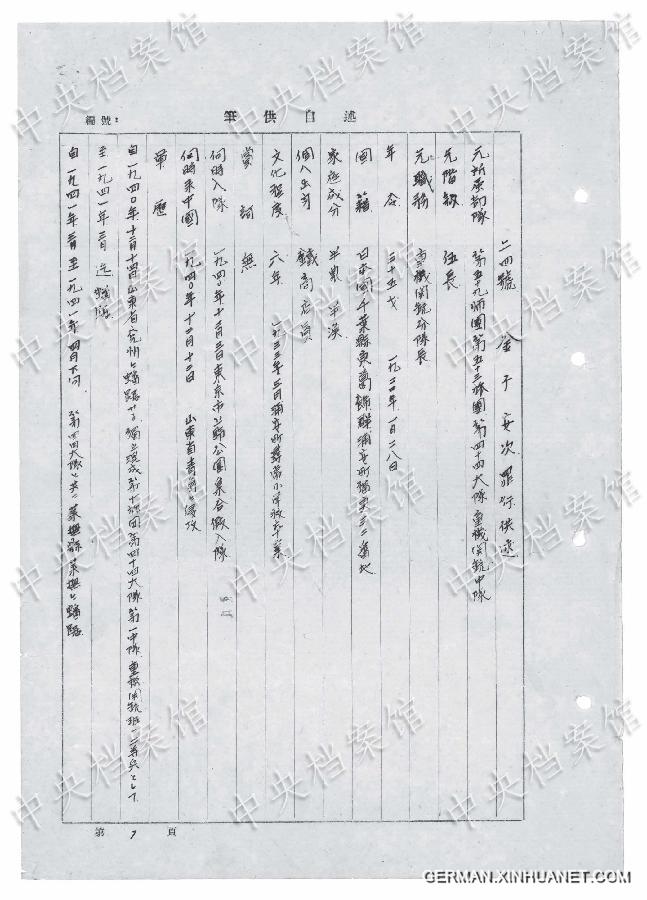 編號:
述自供筆
二四號 金子安次罪行供述
元所属部隊 第五十九師團第五十三旅團第四十四大隊重機関銃中隊
元階級 伍長
元職務 重機関銃分隊長
年令 三十五才 一九二〇年一月二八日
國籍 日本國千葉縣東葛飾郡浦安町猫実三三番地
家庭成分 半農半漁
個人出身 鐵商店員
文化程度 六年 一九三三年三月浦安町尋常小学校卒業
無
何時入隊 一九四〇年十二月三日東京市上野公園集合
何時来中國 一九四〇年十二月十二日 山東省青島上
軍歴
自一九四〇年十二月十四日山東省 独立混成第十旅團第四十四大隊第一中隊重機関銃班 二等兵トシテ
至一九四一年三月迄
自一九四一年三月至一九四一年四月下旬 第四十四大隊 莱蕪縣莱蕪
第 7 頁
中央档案馆
中央档案馆
中央档案馆
中央档案馆
中央档案馆
中央档案馆
中央档案馆
中央档案馆
中央档案馆
GERMAN.XINHUANET.COM